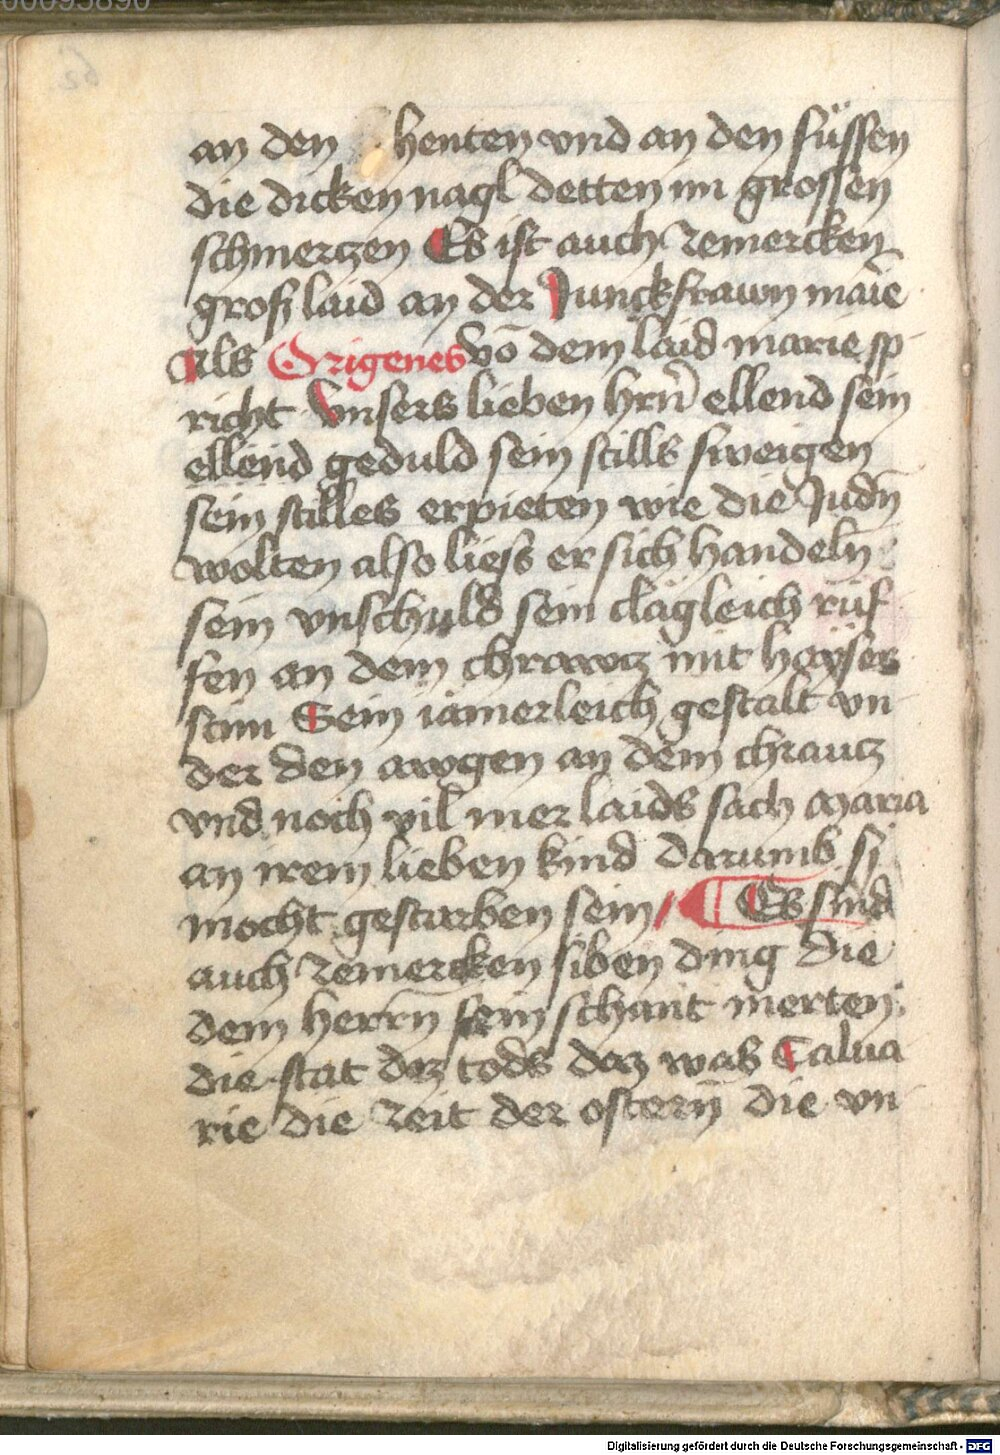 00095890
62
an den henten vnd an den füssen
die dicken nagl detten im grossen
schmertzen Es ist auch zemercken
groß laid an der Junckfrawn maīe
Als Origenes vō dem laid marie sp
richt Vnsers lieben hrn̄ ellend sein
ellend geduld sein stills sweigen
sein stilles erpieten wie die Judn̄
wolten also liess er sich handeln
sein vnschuld sein clägleich rüf
fen an dem chrawtz mit hayser
stim Sein iamerleich gestalt vn
der den awgen an dem chrautz
vnd noch vil mer laids sach maria
an irem lieben kind darumb si
mocht gestarben sein // ¶ Es sind
auch zemercken siben ding die
dem herrn̄ sein schant merten
die stat dez tods daz was Calua
rie die zeit der ostern̄ die vn
Digitalisierung gefördert durch die Deutsche Forschungsgemeinschaft - DFG